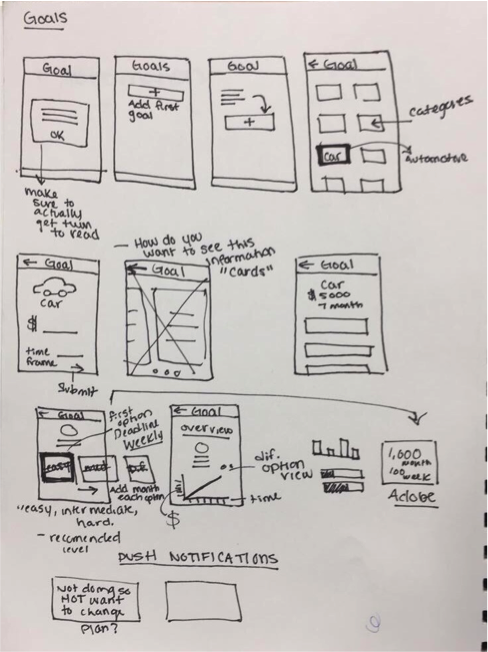 Goals
Goal
OK
make
sure to
actually
get them
to read
Goals
+
Add first
goal
Goal
+
← Goal
car
categories
Automotive
← Goal
car
$
time
frame
Submit
— How do you
want to see this
information
"cards"
← Goal
← Goal
Car
$5000
7 month
← Goal
first
option
Deadline
Weekly
easy
Add month
each option
"easy, intermediate,
hard.
- recomended
level
← Goal
overview
$
time
dif.
option
view
1,000
month
100
week
Adobe
PUSH NOTIFICATIONS
Not doing so
HOT want
to change
plan?